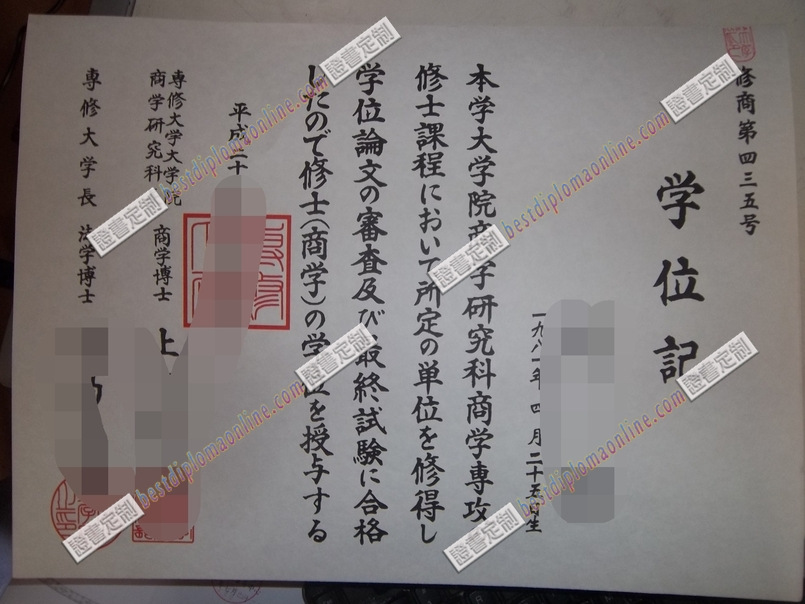 修商第四三五号
学位記
一九八一年 四月二十五日生
本学大学院商学研究科商学専攻
修士課程において所定の単位を修得し
学位論文の審査及び最終試験に合格
したので修士(商学)の学位を授与する
平成二十
専修大学大学院
商学研究科 商学博士 上
専修大学長 法学博士
證書定制 bestdiplomaonline.com 證書定制
證書定制 bestdiplomaonline.com 證書定制
證書定制 bestdiplomaonline.com 證書定制
證書定制 bestdiplomaonline.com 證書定制